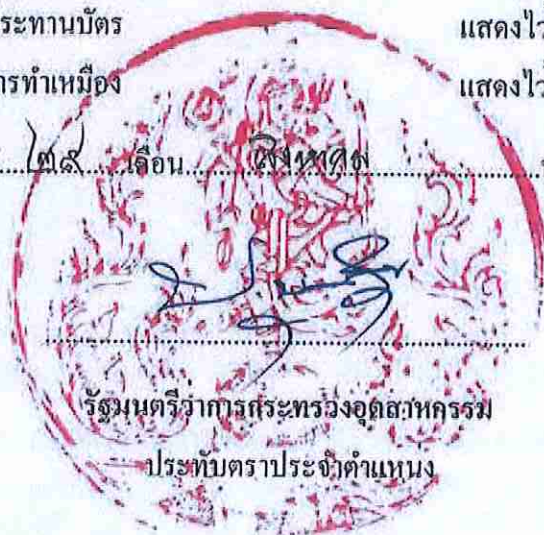 ระทานบัตร แสดงไว้
ารทำเหมือง แสดงไว้
๒๙ เดือน สิงหาคม
รัฐมนตรีว่าการกระทรวงอุตสาหกรรม
ประทับตราประจำตำแหน่ง